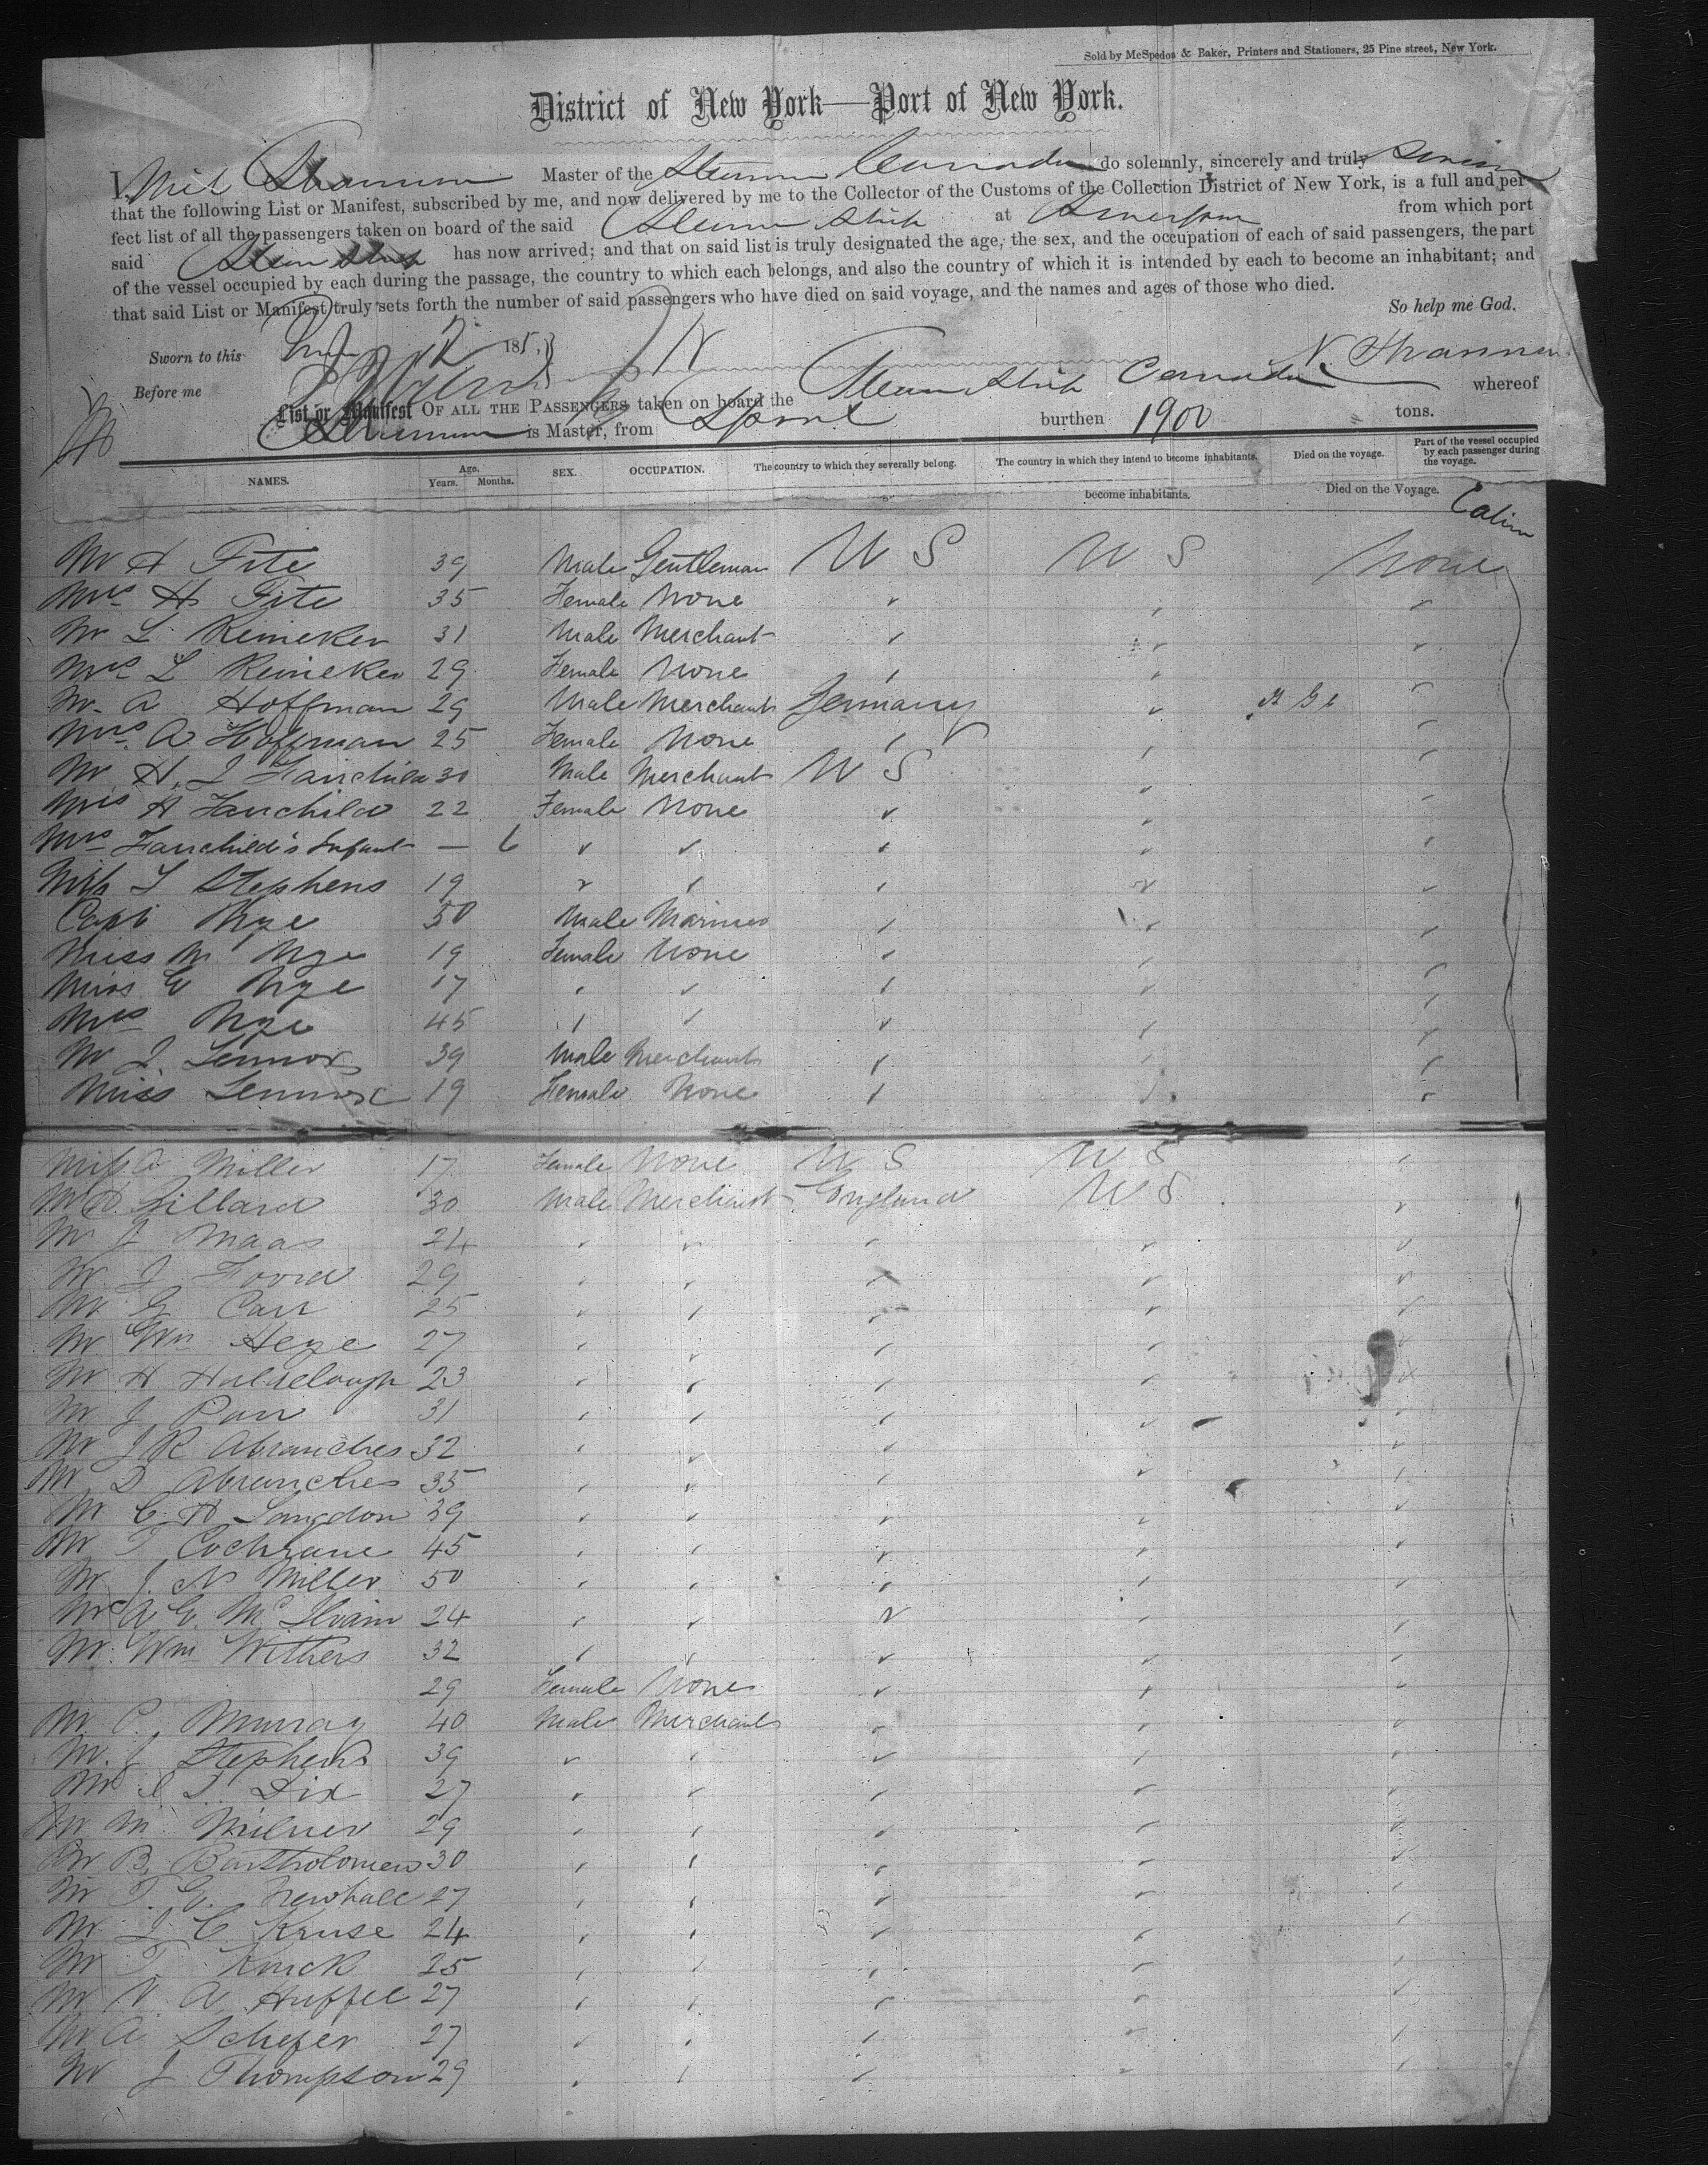 Sold by McSpedon & Baker, Printers and Stationers, 25 Pine street, New York.
District of New York—Port of New York.
I, Neil Shannon Master of the Steamer Canada do solemnly, sincerely and truly
that the following List or Manifest, subscribed by me, and now delivered by me to the Collector of the Customs of the Collection District of New York, is a full and per-
fect list of all the passengers taken on board of the said Steam Ship at Liverpool from which port
said Steam Ship has now arrived; and that on said list is truly designated the age, the sex, and the occupation of each of said passengers, the part
of the vessel occupied by each during the passage, the country to which each belongs, and also the country of which it is intended by each to become an inhabitant; and
that said List or Manifest truly sets forth the number of said passengers who have died on said voyage, and the names and ages of those who died.
So help me God.
Sworn to this 12 185
N. Shannon
Before me
List or Manifest OF ALL THE PASSENGERS taken on board the Steam Ship Canada whereof
Shannon is Master, from Liverpool burthen 1900 tons.
NAMES. Age. Years. Months. SEX. OCCUPATION. The country to which they severally belong. The country in which they intend to become inhabitants. Died on the voyage. Part of the vessel occupied by each passenger during the voyage.
become inhabitants. Died on the Voyage. Cabin
Mr H Fite 39 Male Gentleman U S U S None
Mrs H Fite 35 Female None
Mr L Reineker 31 Male Merchant
Mrs L Reineker 29 Female None
Mr A Hoffman 29 Male Merchant Germany
Mrs A Hoffman 25 Female None
Mr H. J Fairchild 30 Male Merchant U S
Mrs H Fairchild 22 Female None
Mrs Fairchild's Infant — 6
Miss L Stephens 19
Capt Nye 50 Male Mariner
Miss M Nye 19 Female None
Miss E Nye 17
Mrs Nye 45
Mr J. Lennox 39 Male Merchant
Miss Lennox 19 Female None
Miss A Miller 17 Female None U S U S
Mr D. Lillard 30 Male Merchant England U S
Mr J Maas 24
Mr J Foord 29
Mr G Carr 25
Mr Wm Heye 27
Mr H 23
Mr J Parr 31
Mr J R Abranches 32
Mr D Abranches 35
Mr C. H Langdon 39
Mr T Cochrane 45
Mr J. N Miller 50
Mr A G. McIlvain 24
Mr Wm Withers 32
29 Female None
Mr C. Murray 40 Male Merchant
Mr J Stephens 39
Mr J T. Dix 27
Mr M Milner 29
Mr B. Bartholomew 30
Mr T. G. Newhall 27
Mr J C Kruse 24
Mr T Knick 25
Mr V A Huffel 27
Mr A Schefer 27
Mr J Thompson 29